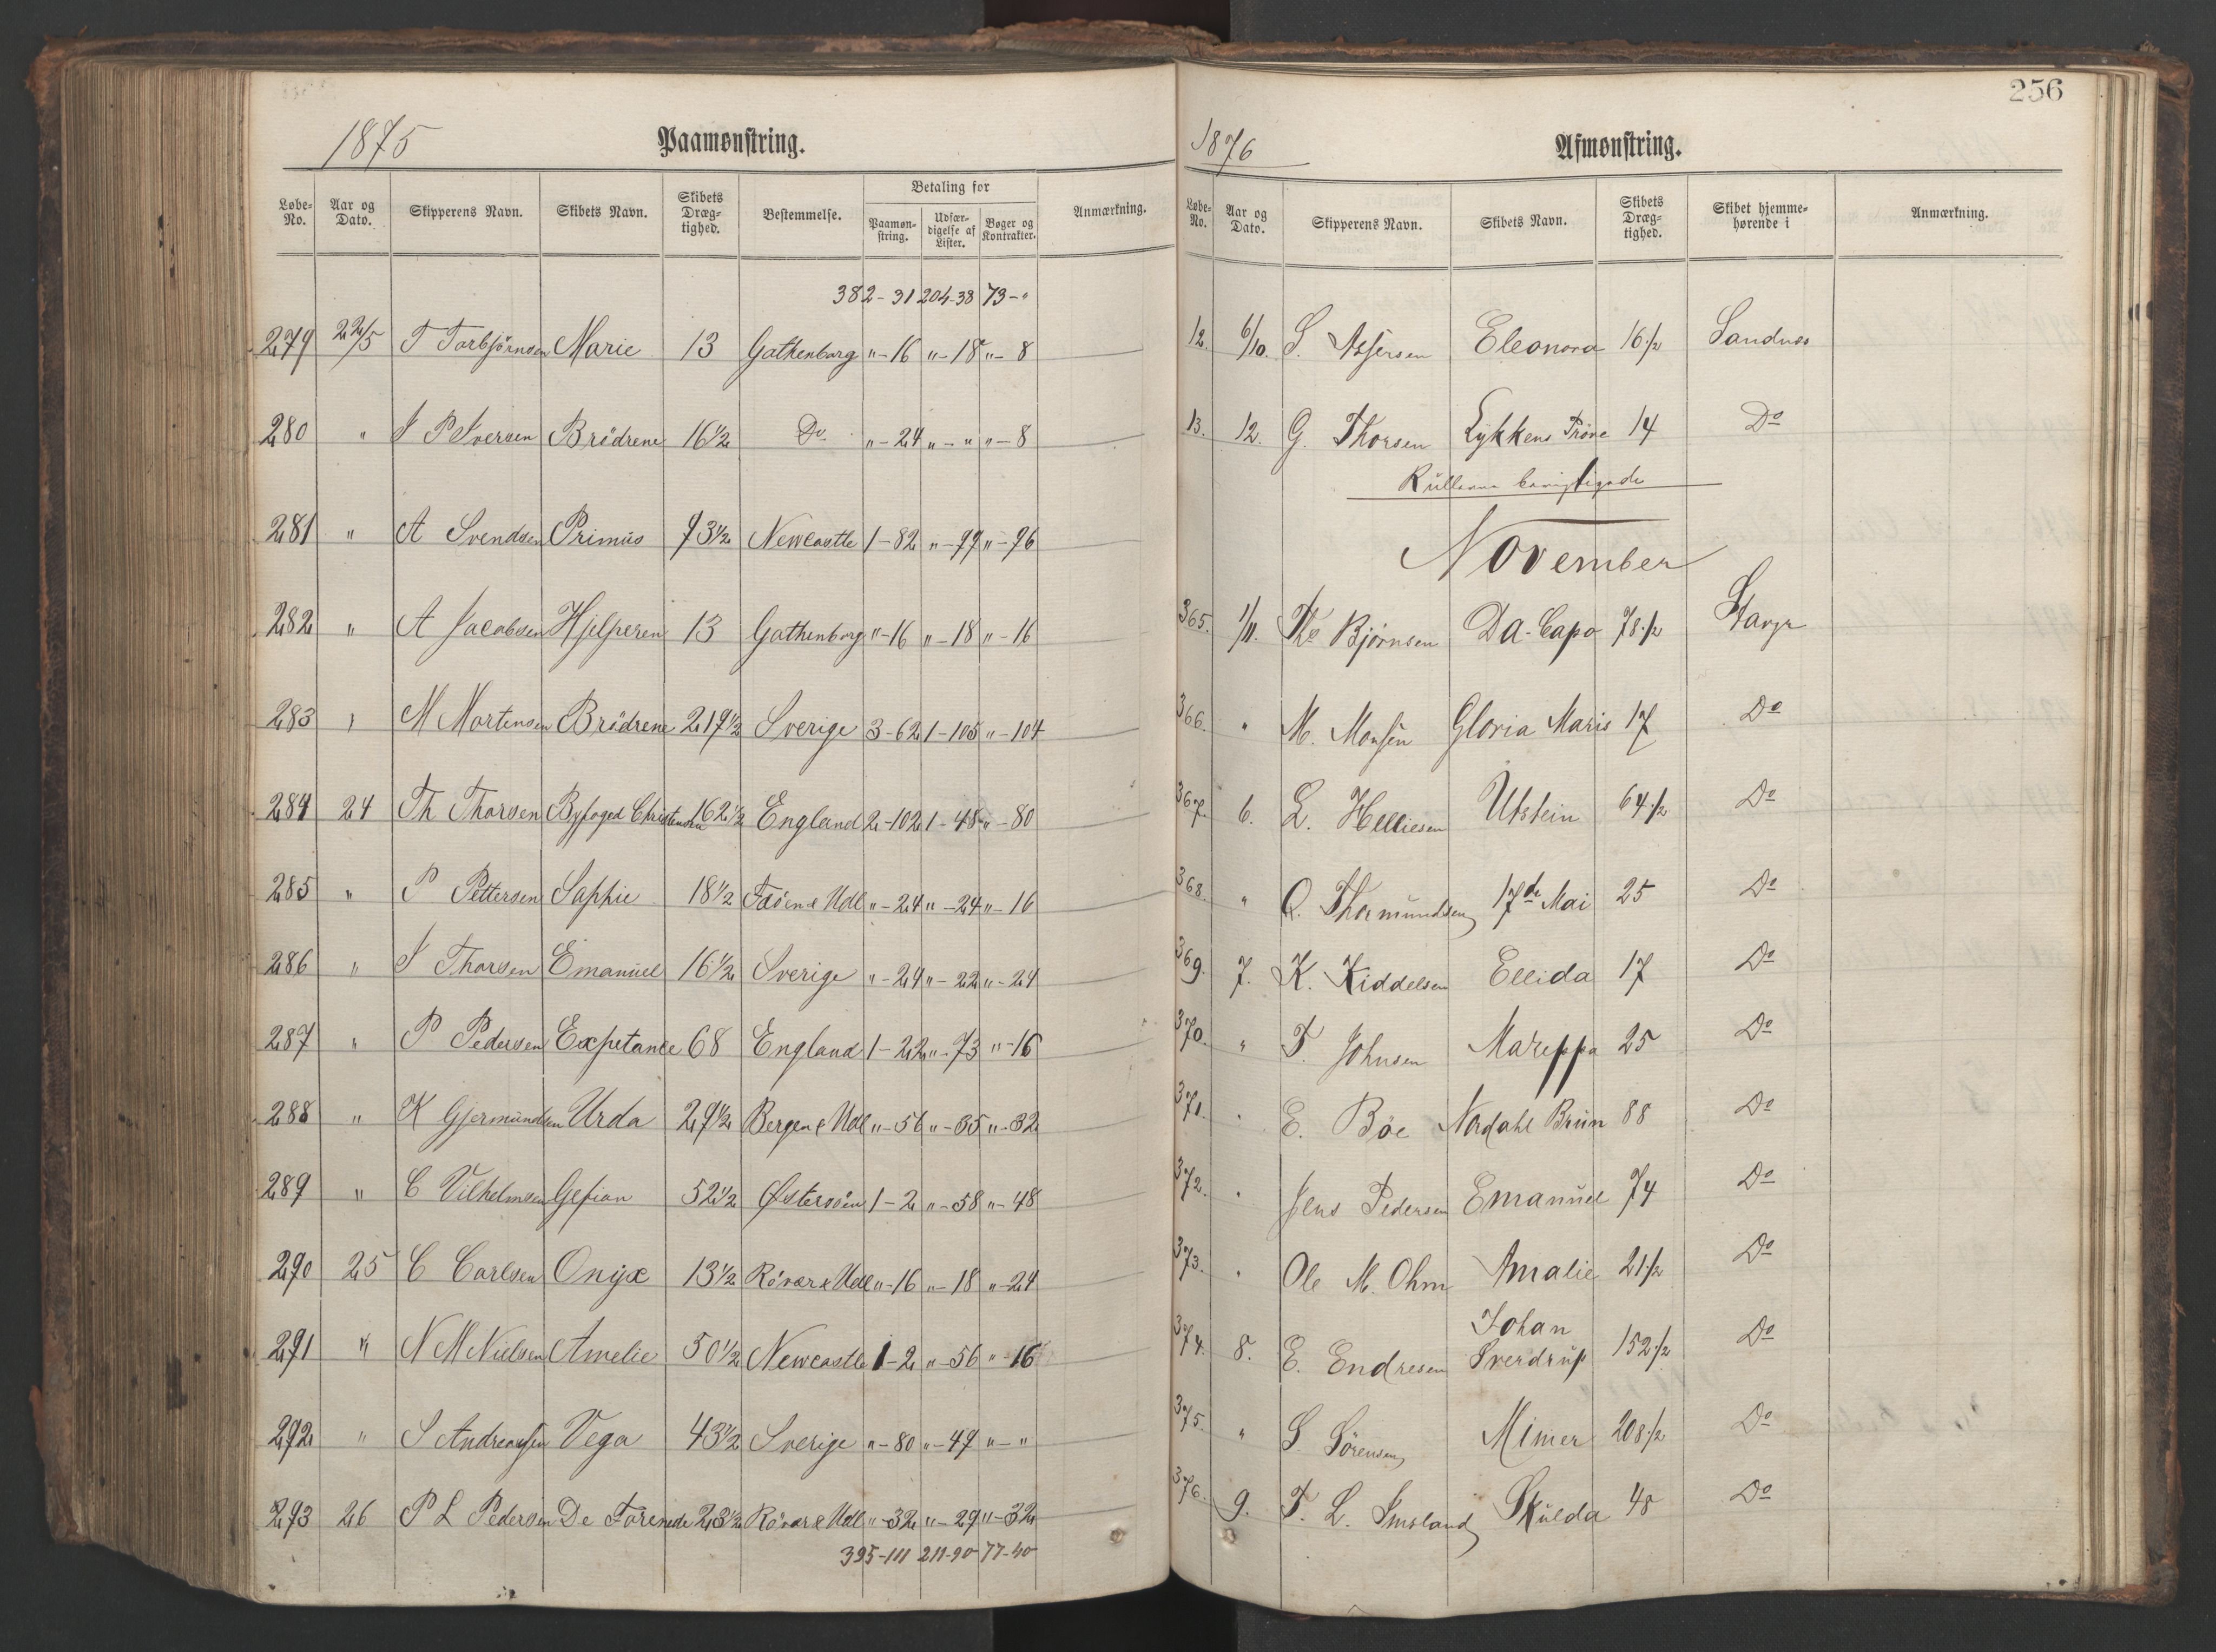 1875
Paamønstring.
Løbe-No. Aar og Dato. Skipperens Navn. Skibets Navn. Skibets Dræg-tighed. Bestemmelse. Betaling for Paamøn-string. Udfær-digelse af Lister. Bøger og Kontrakter. Anmærkning.
382-31 204-38 73-"
279 22/5 T Torbjörnsen Marie 13 Gothenborg "-16 "-18 "-8
280 " I P Iversen Brödrene 16 1/2 Do "-24 "-" "-8
281 " A Svendsen Primus 93 1/2 Newcastle 1-82 "-99 "-96
282 " A Jacobsen Hjelperen 13 Gothenborg "-16 "-18 "-16
283 " M Mortensen Brödrene 219 1/2 Sverige 3-62 1-105 "-104
284 24 Th Thorsen Byfoged Christensen 162 1/2 England 2-102 1-48 "-80
285 " P Pettersen Sophie 18 1/2 Fæöen & Udl "-24 "-24 "-16
286 " I Thorsen Emanuel 16 1/2 Sverige "-24 "-22 "-24
287 " P Pedersen Expetance 68 England 1-22 "-73 "-16
288 " K Gjermundsen Urda 29 1/2 Bergen & Udl "-56 "-35 "-32
289 " C Vilhelmsen Gefion 52 1/2 Østersöen 1-2 "-58 "-48
290 25 C Carlsen Onyx 13 1/2 Rövær & Udl "-16 "-18 "-24
291 " N M Nielsen Amelie 50 1/2 Newcastle 1-2 "-56 "-16
292 " S Andreassen Vega 43 1/2 Sverige "-80 "-49 "-"
293 26 P L Pedersen De Forenede 23 1/2 Rövær & Udl "-32 "-29 "-32
395-111 211-90 77-40
256
1876
Afmønstring.
Løbe-No. Aar og Dato. Skipperens Navn. Skibets Navn. Skibets Dræg-tighed. Skibet hjemme-hørende i Anmærkning.
12. 6/10. S. Assersen Eleonora 16 1/2 Sandnes
13. 12. G. Thorsen Lykkens Pröve 14 Do
Rullerne
November
365. 1/11. Ths Bjørnsen Da-Capo 78 1/2 Stavgr
366. " M. Monsen Gloria Maris 17 Do
367. 6. L. Helliesen Utstein 64 1/2 Do
368. " O. Thormundsen 17de Mai 25 Do
369. 7. K. Kiddelsen Ellida 17 Do
370. " T. Johnsen Mareppa 25 Do
371. " E. Böe Nordahl Brun 88 Do
372. " Jens Pedersen Emanuel 74 Do
373. " Ole M. Ohm Amalie 21 1/2 Do
374. 8. E. Endresen Johan Sverdrup 152 1/2 Do
375. " S Sörensen Mimer 208 1/2 Do
376. 9. T. L. Imsland Skulda 48 Do